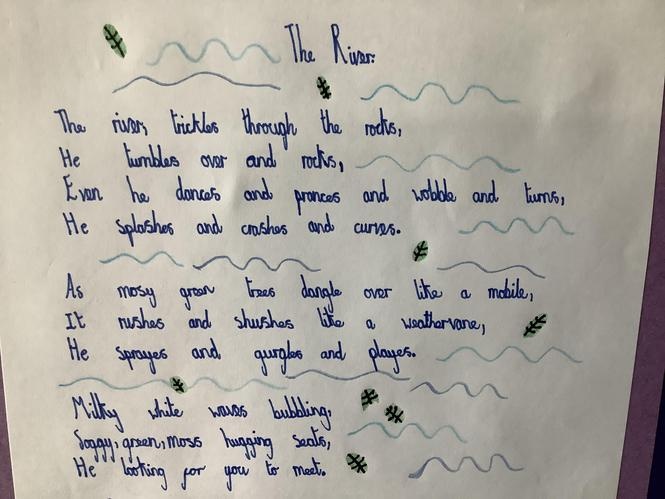 The River.
The river, trickles through the rocks,
He tumbles over and rocks,
Even he dances and prances and wobble and turns,
He splashes and crashes and curves.
As mosy green trees dangle over like a mobile,
It rushes and shushes like a weathervane,
He sprayes and gurgles and playes.
Milky white waves bubbling,
Soggy, green, moss hugging seats,
He looking for you to meet.